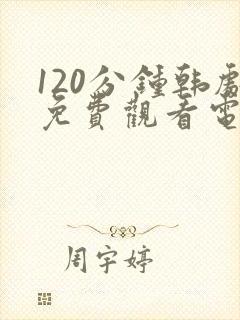 120分鍾韩處
免費觀看電
周宇婷